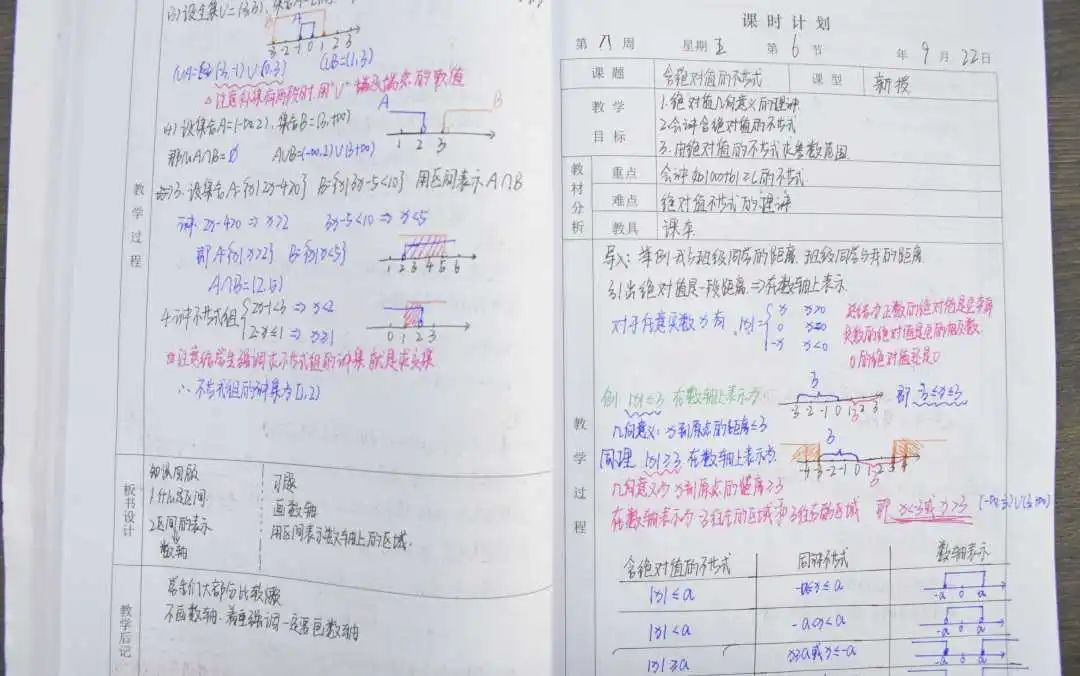 (3) 设全集U=(-3,3),
-3 -2 -1 0 1 2 3
(-3,-1)∪(0,3) =(1,3)
△注意
用"∪" 的数值
(4) 设集合A=(-∞,2), 集合B=(3,+∞)
A B
那么A∩B=∅ A∪B=(-∞,2)∪(3,+∞)
1 2 3
教学过程
3. 设集合A={x|2x-4>0} B={x|3x-5<10} 用区间表示A∩B
解: 2x-4>0 ⇒ x>2 3x-5<10 ⇒ x<5
即A={x|x>2} B={x|x<5}
1 2 3 4 5 6
A∩B=(2,5)
4.解不等式组 2x-1<3 ⇒ x<2
2-x≤1 ⇒ x≥1
0 1 2 3
注意给学生强调求不等式组的解集就是求交集
∴ 不等式组的解集为[1,2)
板书设计
知识回顾
1.什么是区间
2.区间的表示
数轴
习题
画数轴
用区间表示数轴上的区域.
教学后记
学生们大部分比较懒
不画数轴. 着重强调一定要画数轴
课时计划
第 八 周 星期 五 第 6 节 年 9 月 22 日
课题 含绝对值的不等式 课型 新授
教学目标
1.绝对值几何意义的理解.
2.会解含绝对值的不等式
3.由绝对值的不等式求参数范围
教材分析
重点 会解 的不等式
难点 绝对值不等式的理解
教具 课本
导入: 举例 我与班级同学的距离. 班级同学与我的距离
引出绝对值是一段距离 ⇒ 在数轴上表示.
对于任意实数x有 |x|= x x>0
0 x=0
-x x<0
总结为正数的绝对值是它本身
负数的绝对值是它的相反数
0的绝对值还是0
教学过程
例: |x|≤3 在数轴上表示为
3
-3 -2 -1 0 1 2 3
即 -3≤x≤3
几何意义: x到原点的距离≤3
同理 |x|≥3 在数轴上表示为
3
几何意义为 x到原点的距离≥3
在数轴表示为 -3往左的区域和3往右的区域 即
含绝对值的不等式 同解不等式 数轴表示
|x|≤a -a≤x≤a -a 0 a
|x|<a -a<x<a -a 0 a
|x|≥a x≥a或x≤-a -a 0 a